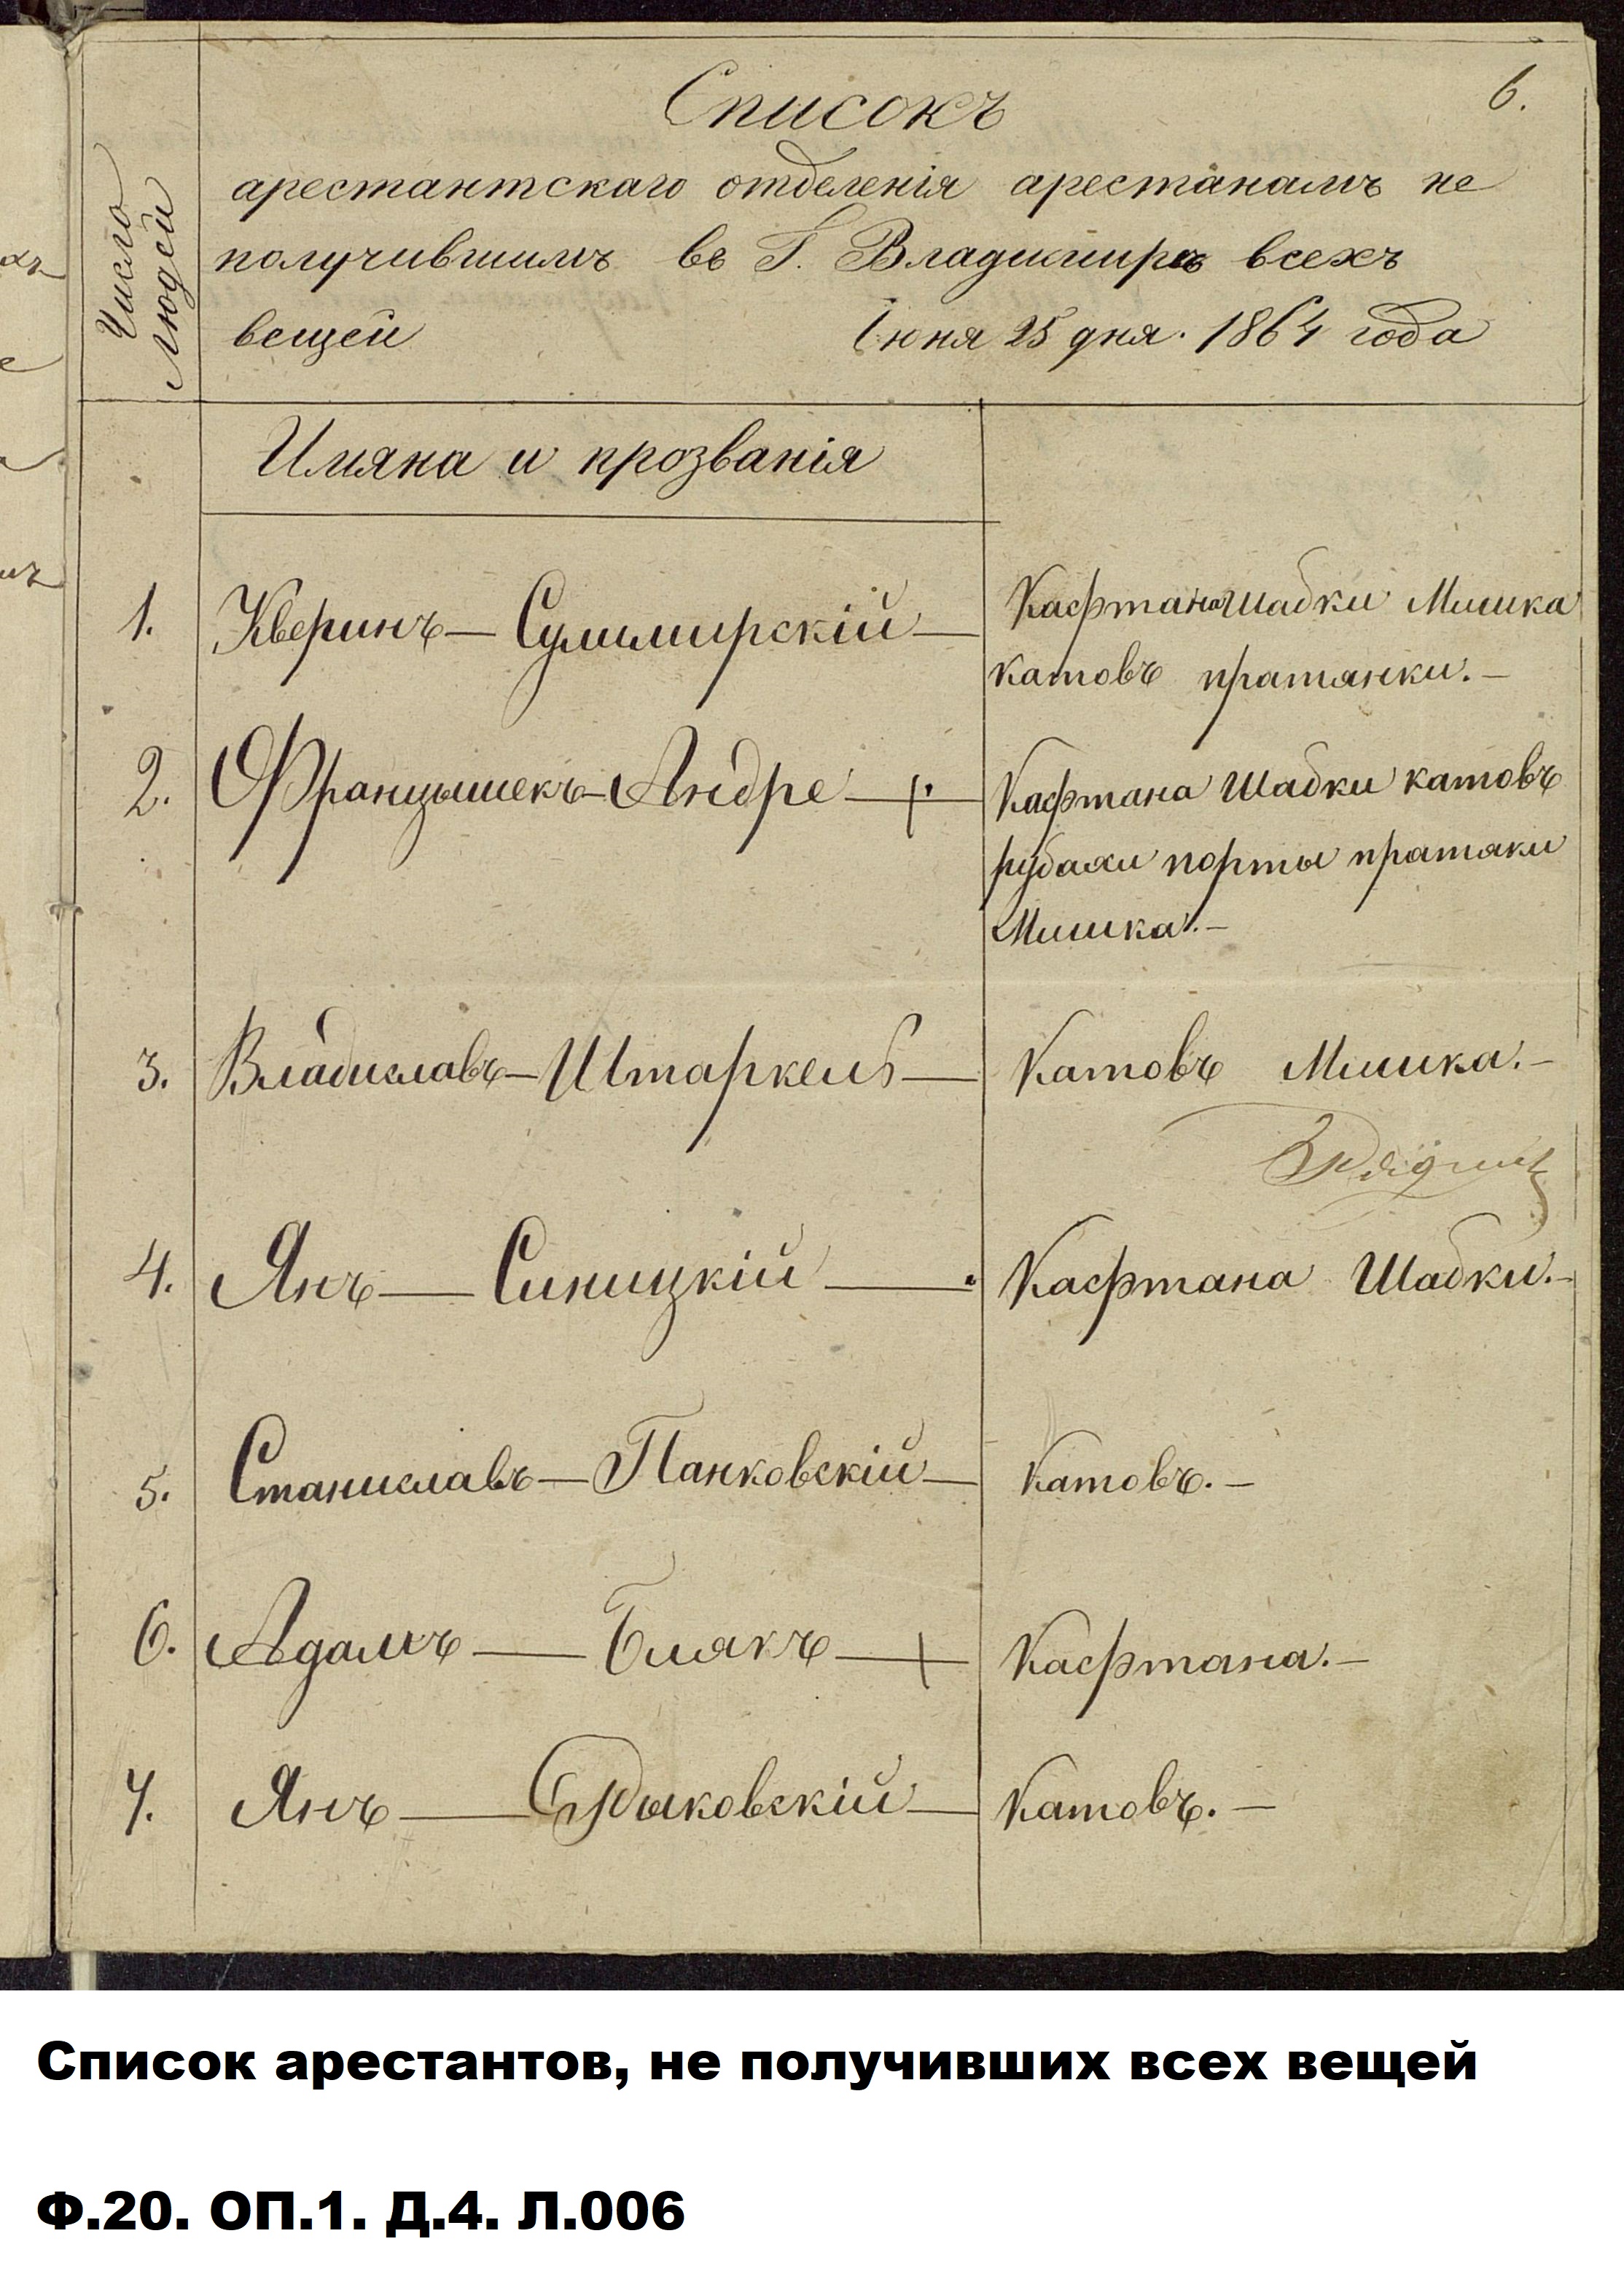 6.
Списокъ
арестантскаго отделенія арестанамъ не
получившимъ въ Г. Владимира всехъ
вещей Іюня 25 дня. 1864 года
Число
Людей
Имяна и прозванія
1. Кверинъ — Сулимирскій — Кафтана шабки Мишка
катовъ пратянки. —
2. Францышекъ — Андре — + Кафтана Шабки катовъ
рубахи порты пратяки
Мишка. —
3. Владиславъ — Штаркель — Катовъ Мишка. —
4. Янъ — Синицкій — Кафтана Шабки. —
5. Станиславъ — Панковскій — Катовъ. —
6. Адамъ — Блякъ — + Кафтана. —
7. Янъ — Катовъ. —
Список арестантов, не получивших всех вещей
Ф.20. ОП.1. Д.4. Л.006